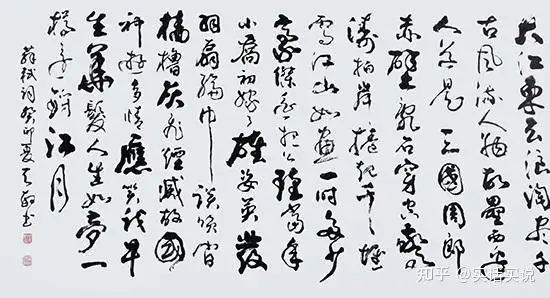 大江東去浪淘尽千
古風流人物故壘西边
人道是三國周郎
赤壁乱石穿空驚
濤拍岸捲起千堆
雪江山如畫一時多少
豪傑遥想公瑾當年
小喬初嫁了雄姿英發
羽扇綸巾談笑间
檣櫓灰飛煙滅故國
神遊多情應笑我早
生華髮人生如夢一
樽还酹江月
蘇軾词癸卯夏书
知乎 @实话实说